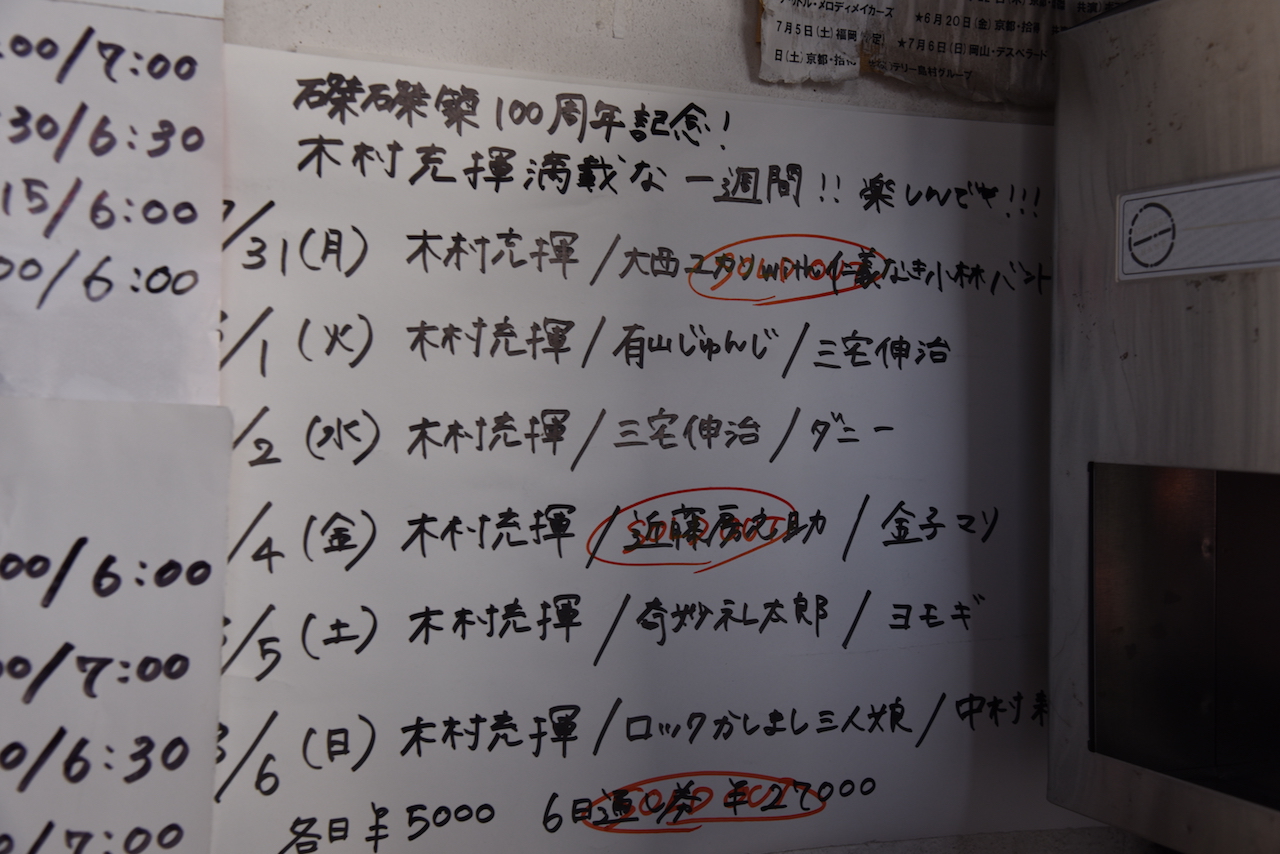 トル・メロディメイカーズ
7月5日(土)福岡
日(土)京都・拾
★6月20日(金)京都・拾得
★7月6日(日)岡山・デスペラード
テリー島村グループ
00/7:00
30/6:30
15/6:00
00/6:00
00/6:00
0/7:00
0/6:30
0/7:00
磔磔築100周年記念!
木村充揮満載な一週間!! 楽しんでや!!!
7/31(月) 木村充揮/大西ユカリwith仁義なき小林バンド
SOLD OUT
/1(火) 木村充揮/有山じゅんじ/三宅伸治
/2(水) 木村充揮/三宅伸治/ダニー
/4(金) 木村充揮/近藤房之助/金子マリ
SOLD OUT
/5(土) 木村充揮/奇妙礼太郎/ヨモギ
8/6(日) 木村充揮/ロックかしまし三人娘/中村
各日¥5000 6日通し券 ¥27000
SOLD OUT